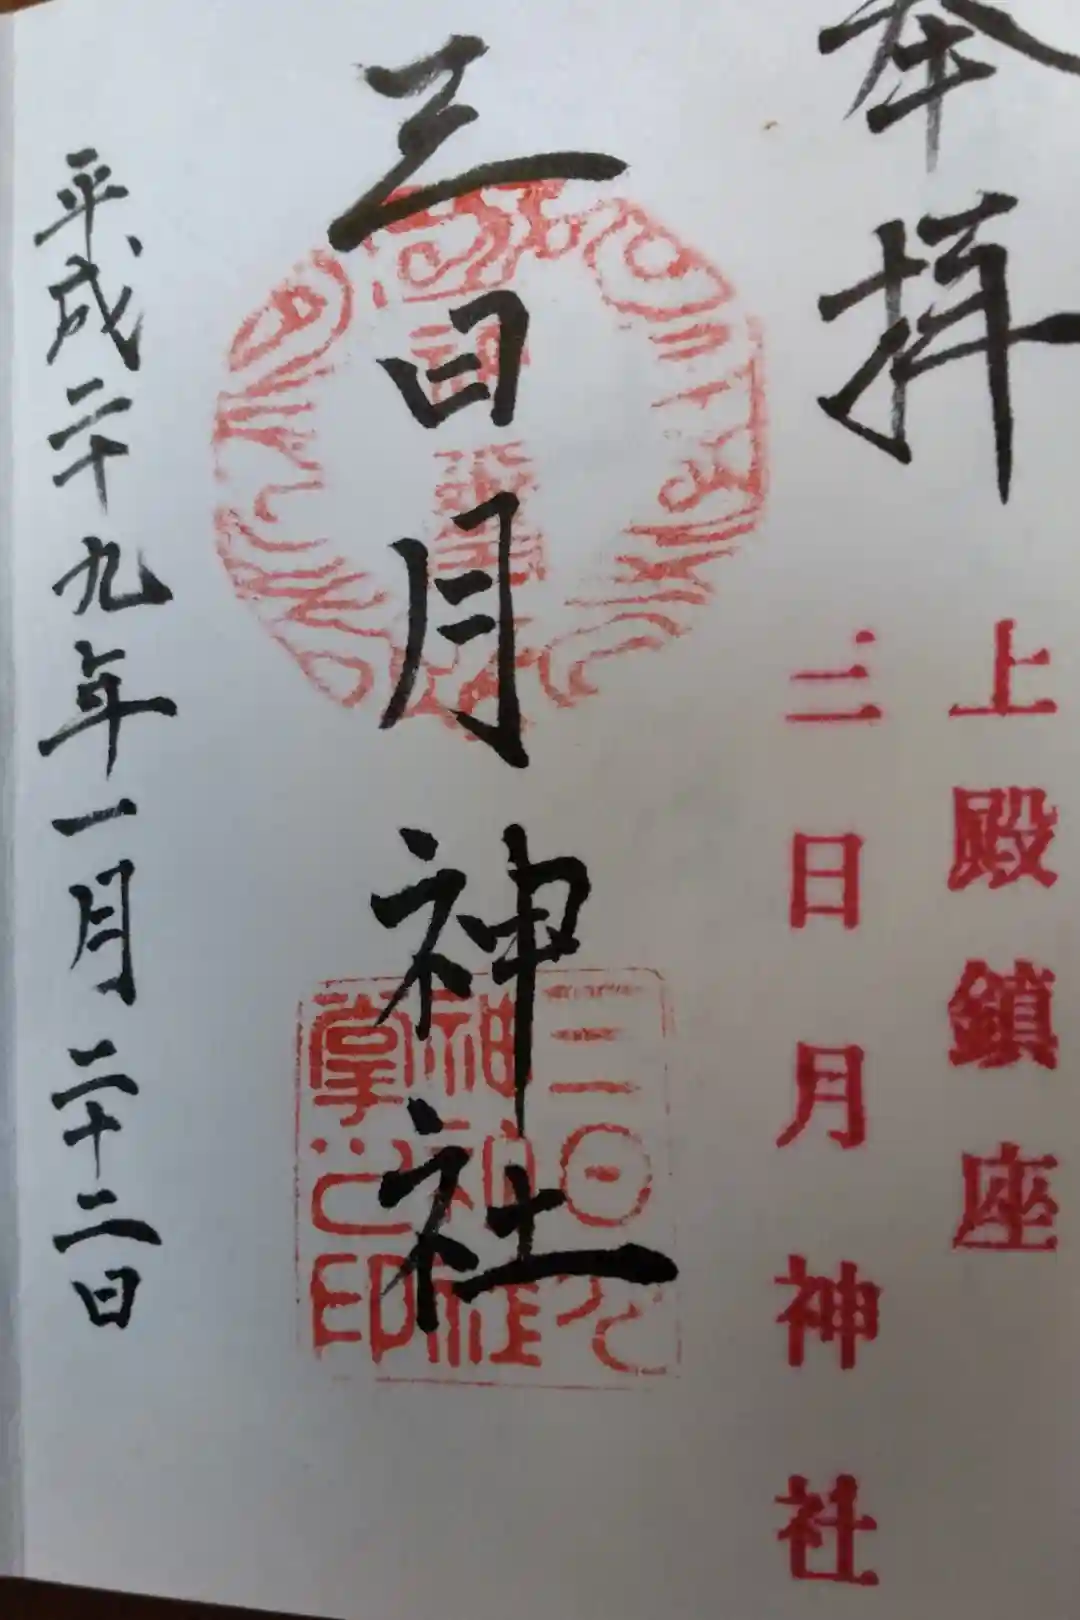 奉拝
上殿鎮座
三日月神社
三日月神社
三日月
神社
掌之印
平成二十九年一月二十二日